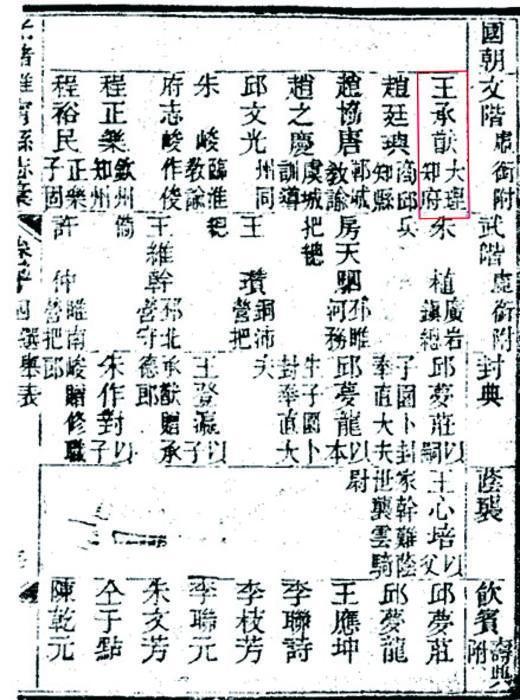 國朝文階虛銜附 武階虛銜附 封典 蔭襲 飲賓壽典附
王承猷大理知府 朱植廣岩鎮總 邱夢莊以嗣 王心培以父 邱夢莊
趙廷璵商邱知縣 兵 子園卜封奉直大夫 家幹難蔭世襲雲騎 邱夢龍
趙協唐鄲城教諭 房天駟邳睢河務 邱夢龍以本 尉 王應坤
趙之慶虞城訓導 把總 生子園卜封奉直大 李聯詩
邱文光州同 王瓚銅沛營把 夫 李枝芳
朱峻臨淮教諭 總 王登瀛以子 李聯元
府志峻作俊 王維幹邳北營守 承猷贈承德郎 朱文芳
程正樂欽州知州 備 朱作對以子 仝于點
程裕民正樂子固 許仲睢南營把 峻贈修職郎 陳乾元
光緒睢寧縣志稿 選舉表